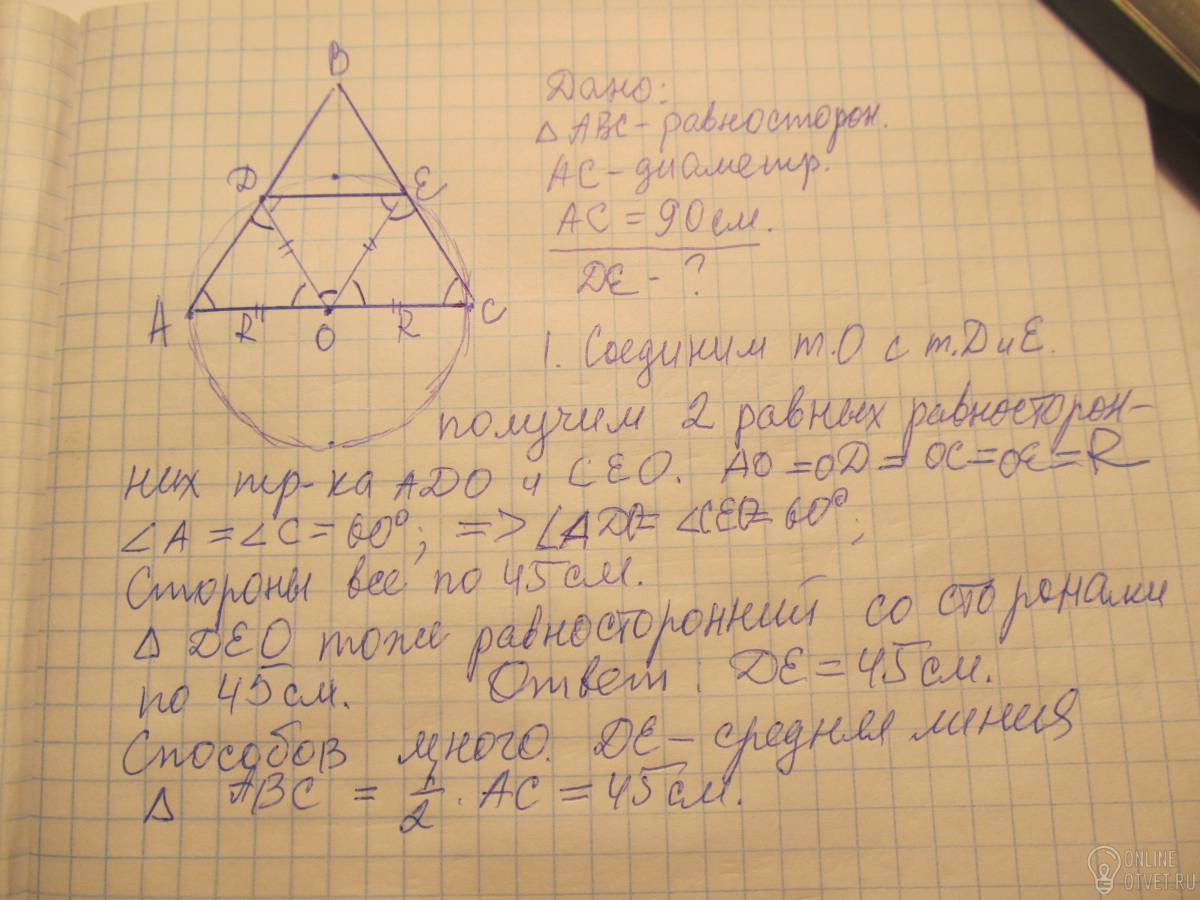 B
Дано:
△ ABC - равносторон.
AC - диаметр.
AC = 90 см.
DE - ?
D E
A R O R C
1. Соединим т.O с т.D и E.
получим 2 равных равносторон-
них тр-ка ADO и CEO. AO = OD = OC = OE = R
∠A = ∠C = 60°; => ∠ADO = ∠CEO = 60°;
Стороны все по 45 см.
△ DEO тоже равносторонний со сторонами
по 45 см. Ответ: DE = 45 см.
Способов много. DE - средняя линия
△ ABC = 1/2 · AC = 45 см.
ONLINE
OTVET.RU